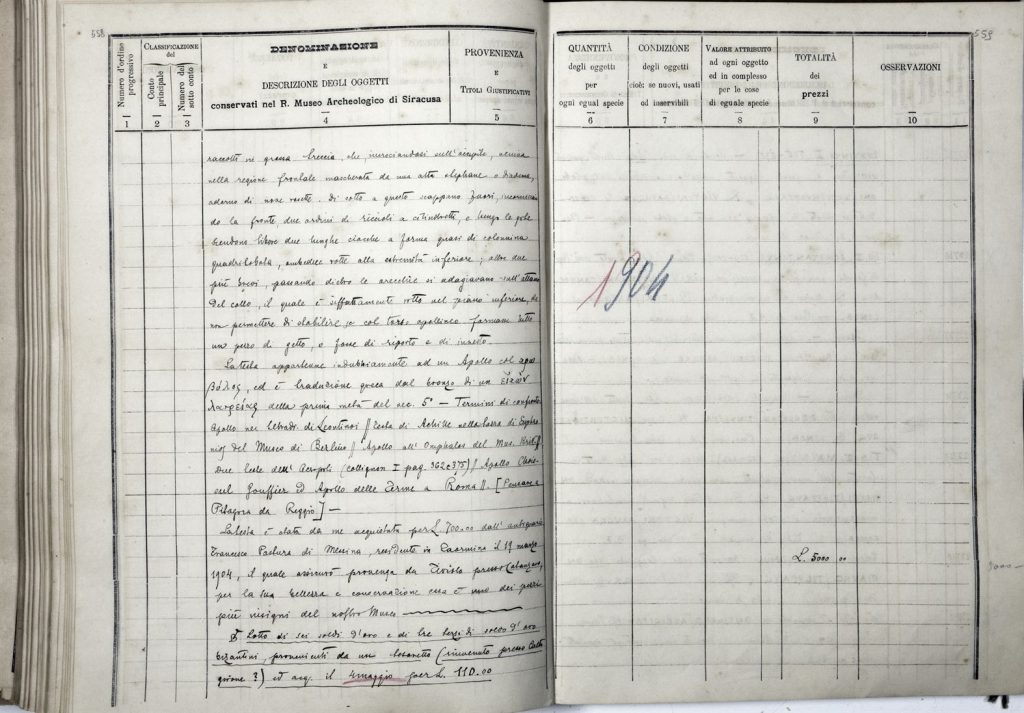 558
Numero d'ordine progressivo
1
CLASSIFICAZIONE del
Conto principale
2
Numero del sotto conto
3
DENOMINAZIONE
E
DESCRIZIONE DEGLI OGGETTI
conservati nel R. Museo Archeologico di Siracusa
4
PROVENIENZA
E
TITOLI GIUSTIFICATIVI
5
raccolti in grossa treccia, che, incrociandosi sull'occipite, veniva
nella regione frontale mascherata da una alta o diadema,
adorno di nove rosette. Di sotto a questo scappano fuori,
do la fronte, due ordini di riccioli a cilindretti, e lungo le gote
scendono due lunghe ciocche a forma quasi di colonnina
quadrilobata, ambedue rotte alla estremità inferiore; altre due
più brevi, passando dietro le orecchie si adagiavano sull'
del collo, il quale è siffattamente rotto nel piano inferiore, da
non permettere di stabilire se col torso apollineo formasse tutto
un pezzo di getto, o fosse di riporto e di innesto.
La testa appartenne indubbiamente ad un Apollo
ed è traduzione greca dal bronzo di un
della prima metà del sec. 5° — Termini di confronto
Apollo nei tetradr. di Leontinoi // testa di Achille nella tazza di
del Museo di Berlino // Apollo all'Omphalos del Mus.
Due teste dell'Acropoli (Collignon I pag. 362 e 375) // Apollo Choiseul
Gouffier ed Apollo delle Terme a Roma //. [Pensare a
Pitagora da Reggio] —
La testa è stata da me acquistata per L. 700.00 dall'antiquario
Francesco Pastura di Messina, residente in Taormina il 19 marzo
1904, il quale assicurò provenga da Tiriolo presso Catanzaro,
per la sua bellezza e conservazione essa è uno dei pezzi
più insigni del nostro Museo
Lotto di sei soldi d'oro e di tre terzi di soldo d'oro
bizantini, provenienti da un tesoretto (rinvenuto presso
?) ed acq. il 4 maggio per L. 110.00
559
QUANTITÀ
degli oggetti
per
ogni egual specie
6
CONDIZIONE
degli oggetti
cioè: se nuovi, usati
od inservibili
7
VALORE ATTRIBUITO
ad ogni oggetto
ed in complesso
per le cose
di eguale specie
8
TOTALITÀ
dei
prezzi
9
OSSERVAZIONI
10
1904
L. 5000 00